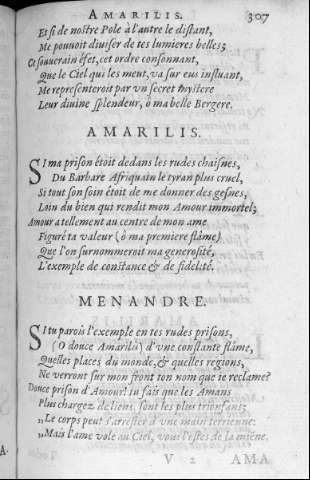 AMARILIS. 307
Et si de nostre Pole à l'autre le distant,
Me pouvoit diviser de tes lumieres belles;
Ce souverain éfet, cet ordre consonnant,
Que le Ciel qui les meut, va sur eus influant,
Me representeroit par vn secret mystere
Leur divine splendeur, ô ma belle Bergere.
AMARILIS.
SI ma prison étoit dedans les rudes chaisnes,
Du Barbare Affriquain le tyran plus cruel,
Si tout son soin étoit de me donner des gesnes,
Loin du bien qui rendit mon Amour immortel;
Amour a tellement au centre de mon ame
Figuré ta valeur (ô ma premiere flâme)
Que l'on surnommeroit ma generosité,
L'exemple de constance & de fidelité.
MENANDRE.
SI tu parois l'exemple en tes rudes prisons,
(O douce Amarilis) d'vne constante flâme,
Quelles places du monde, & quelles regions,
Ne verront sur mon front ton nom que ie reclame?
Douce prison d'Amour! tu fais que les Amans
Plus chargez de liens, sont les plus trionfans;
„Le corps peut s'arrester d'vne main terrienne:
„Mais l'ame vole au Ciel, vous l'estes de la miéne.
V 2 AMA
A.